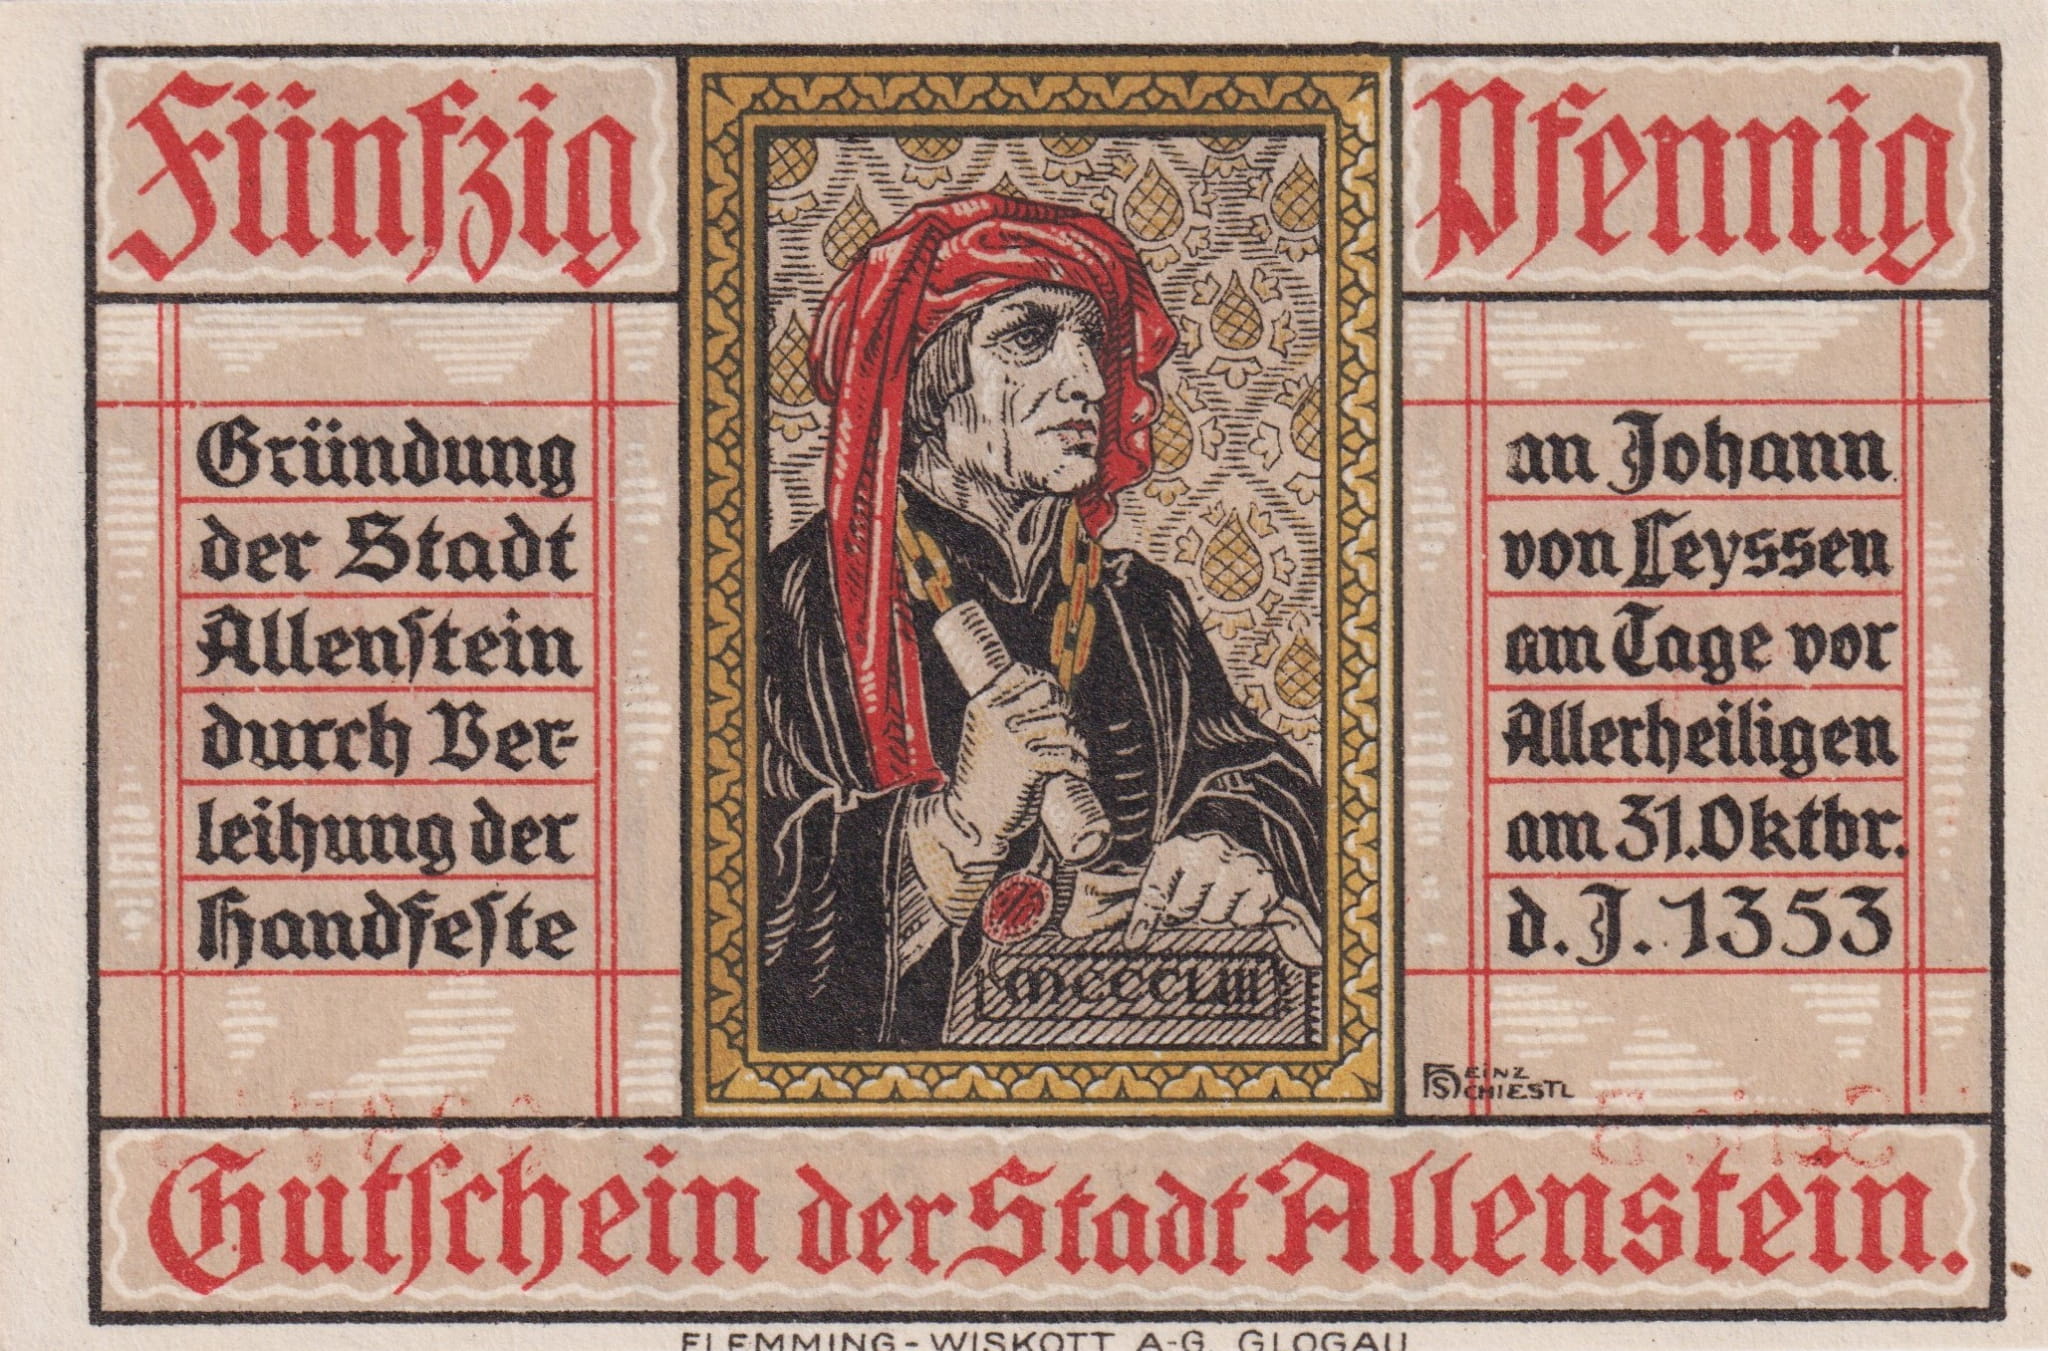 Fünfzig
Pfennig
Gründung
der Stadt
Allenstein
durch Ver-
leihung der
Handfeste
an Johann
von Leyssen
am Tage vor
Allerheiligen
am 31. Oktbr.
d. J. 1353
MCCCLIII
HEINZ
SCHIESTL
Gutschein der Stadt Allenstein.
FLEMMING-WISKOTT A-G. GLOGAU